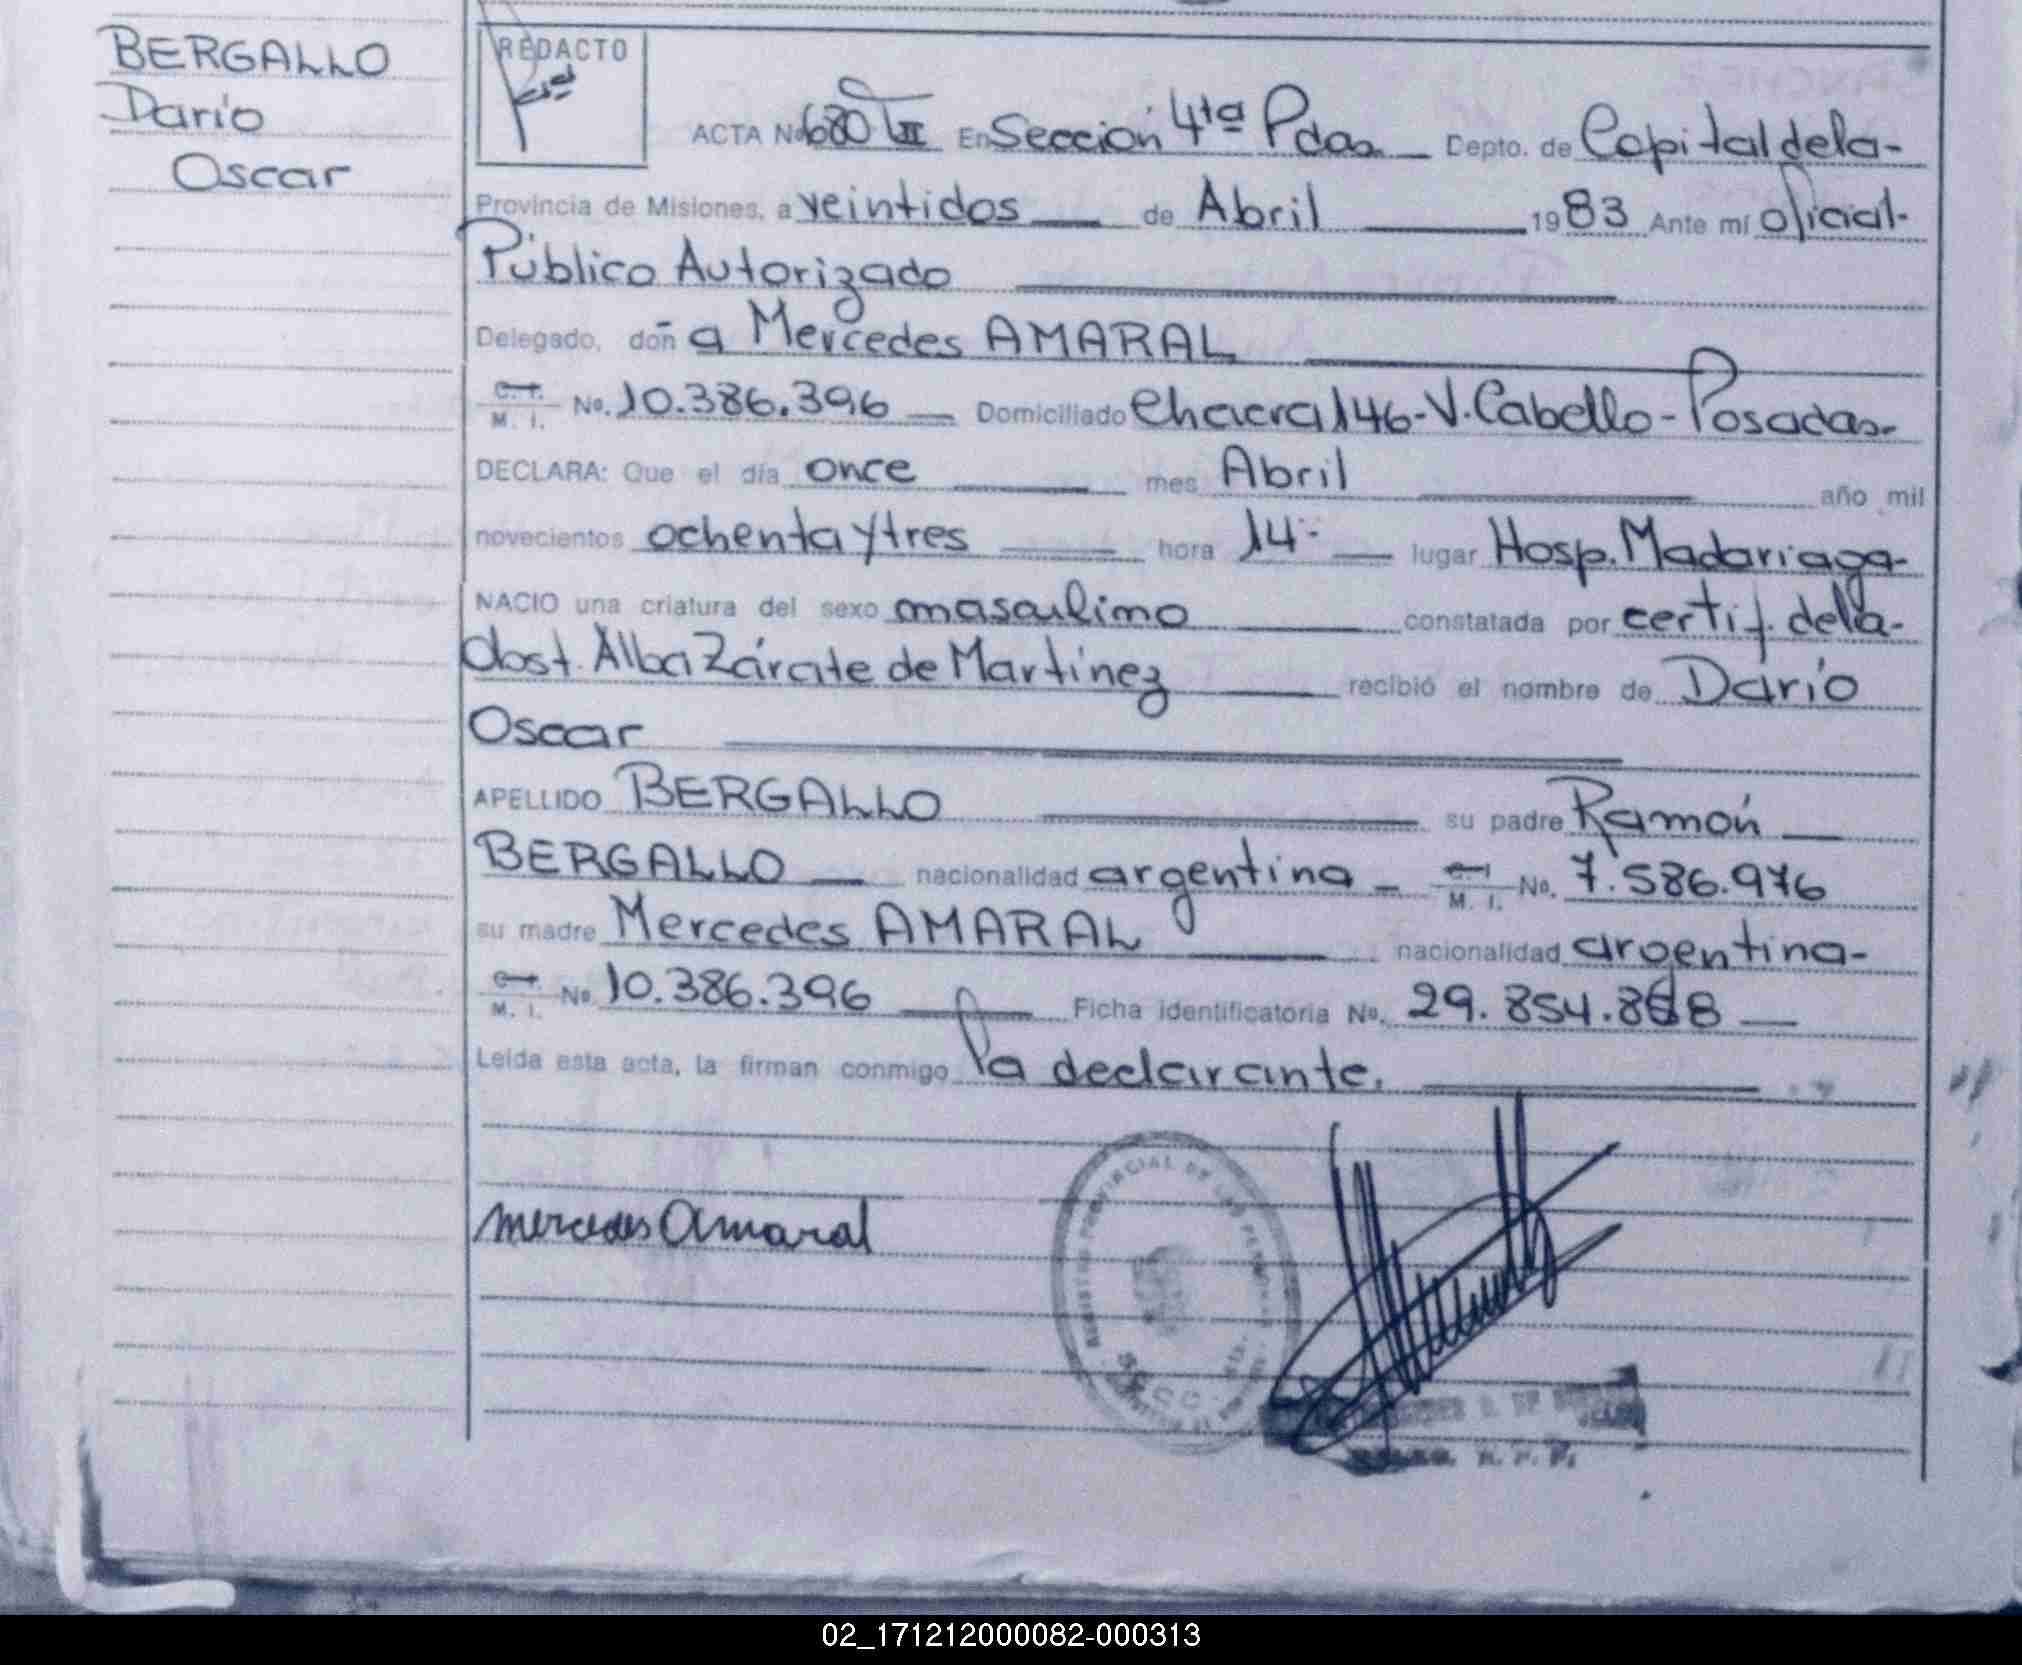 BERGALLO
Darío
Oscar
REDACTO
ACTA No 680 TII En Sección 4ta Pdas. Depto. de Capital de la-
Provincia de Misiones, a veintidos de Abril 1983 Ante mí oficial-
Público Autorizado
Delegado, doñ a Mercedes AMARAL
C. I. M. I. No. 10.386.396 Domiciliado Chacra 146-V. Cabello-Posadas-
DECLARA: Que el día once mes Abril año mil
novecientos ochenta y tres hora 14- lugar Hosp. Madariaga-
NACIO una criatura del sexo masculino constatada por certif. de la-
obst. Alba Zárate de Martínez recibió el nombre de Darío
Oscar
APELLIDO BERGALLO su padre Ramón
BERGALLO nacionalidad argentina C. I. M. I. No. 7.586.976
su madre Mercedes AMARAL nacionalidad argentina-
C. I. M. I. No 10.386.396 Ficha identificatoria No. 29.854.8
Leída esta acta, la firman conmigo la declarante.
mercedes Amaral
REGISTRO PROVINCIAL DE LAS PERSONAS
02_171212000082-000313